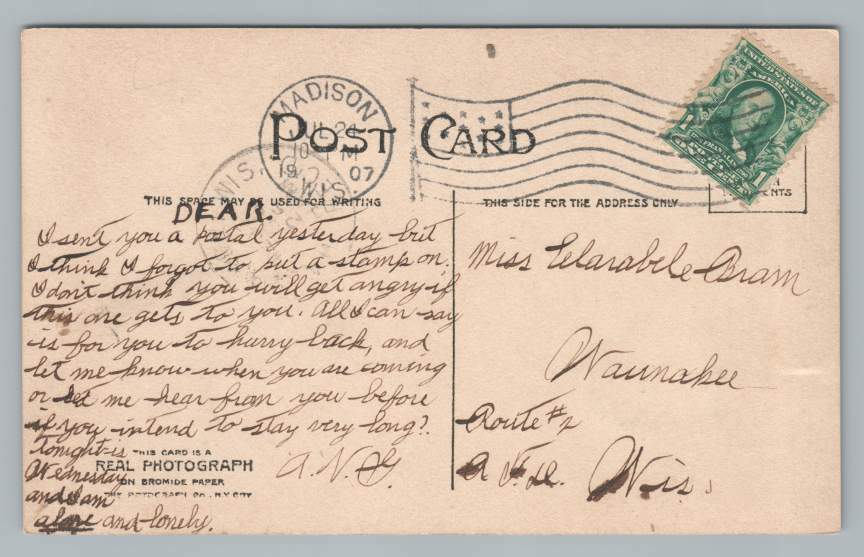 POST CARD
MADISON
JUL 24
10 PM
19 07
WIS.
WIS.
UNITED STATES OF
AMERICA
1 1
FRANKLIN
THIS SPACE MAY BE USED FOR WRITING
THIS SIDE FOR THE ADDRESS ONLY
DEAR.
I sent you a postal yesterday but
I think I forgot to put a stamp on.
I don't think you will get angry if
this one gets to you. All I can say
is for you to hurry back, and
let me know when you are coming
or let me hear from you before
if you intend to stay very long?.
tonight is
Wednesday
and I am
alone and lonely.
A. N. G.
THIS CARD IS A
REAL PHOTOGRAPH
ON BROMIDE PAPER
THE ROTOGRAPH CO., N.Y. CITY
Miss Clarabele Aram
Waunakee
Route #2
R. F. D. Wis.